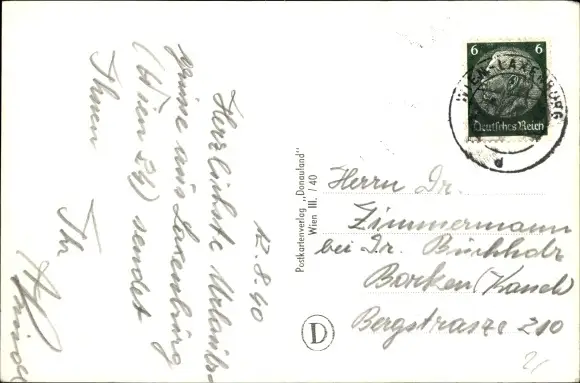 12.8.40
Herzlichste Urlaubs-
grüsse aus Laxenburg
(Wien 24) sendet
Ihnen
Ihr
Postkartenverlag „Donauland"
Wien III. / 40
D
6 6
Deutsches Reich
WIEN-LAXENBURG
d
Herrn Dr.
Zimmermann
bei Dr. Buchholz
Borken
Bergstrasze 210